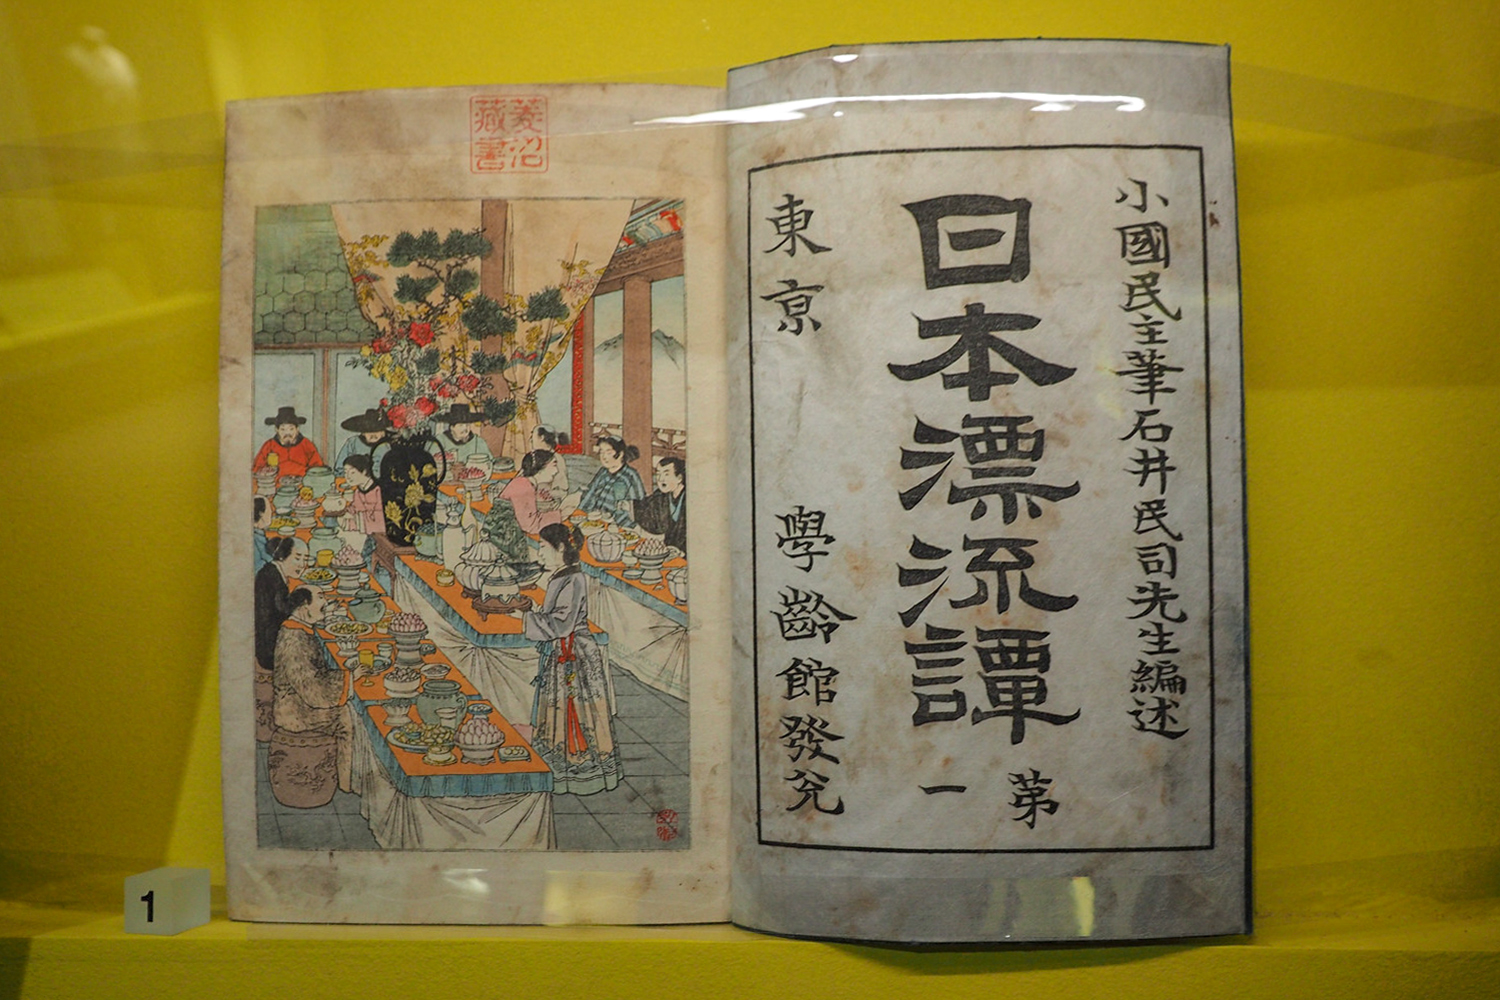 小國民主筆石井民司先生編述
日本漂流譚
第一
東京
學齡館發兌
菱沼
藏書
1